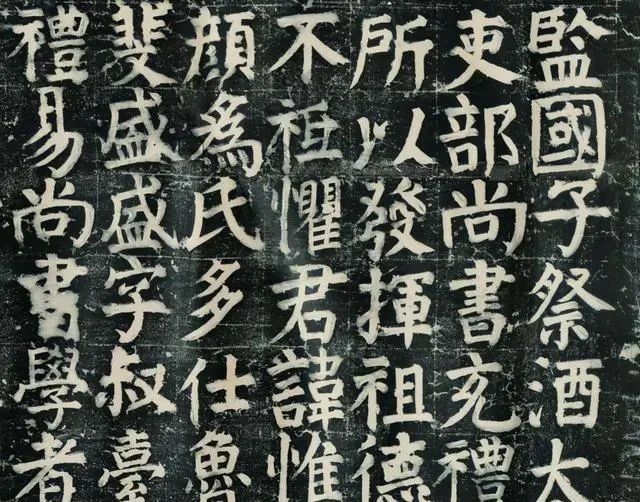 監國子祭酒大
吏部尚書充禮
所以發揮祖德
不祗懼君諱惟
顏為氏多仕魯
斐盛盛字叔臺
禮易尚書學者